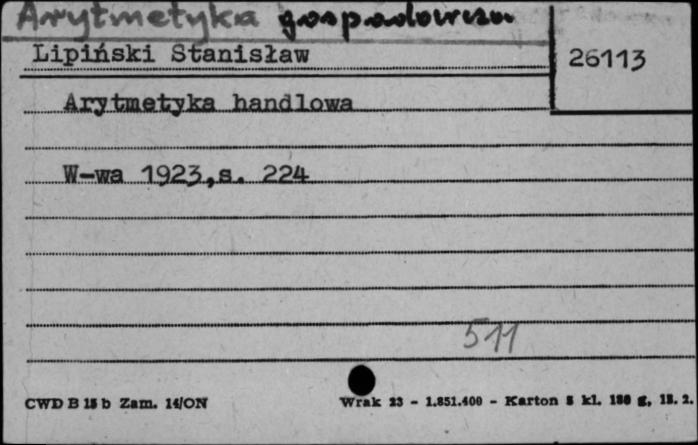 Arytmetyka gospodarcza
Lipiński Stanisław
26113
Arytmetyka handlowa
W-wa 1923,s. 224
511
CWD B 15 b Zam. 14/ON
Wrak 23 - 1.851.400 - Karton 5 kl. 180 g, 15. 2.